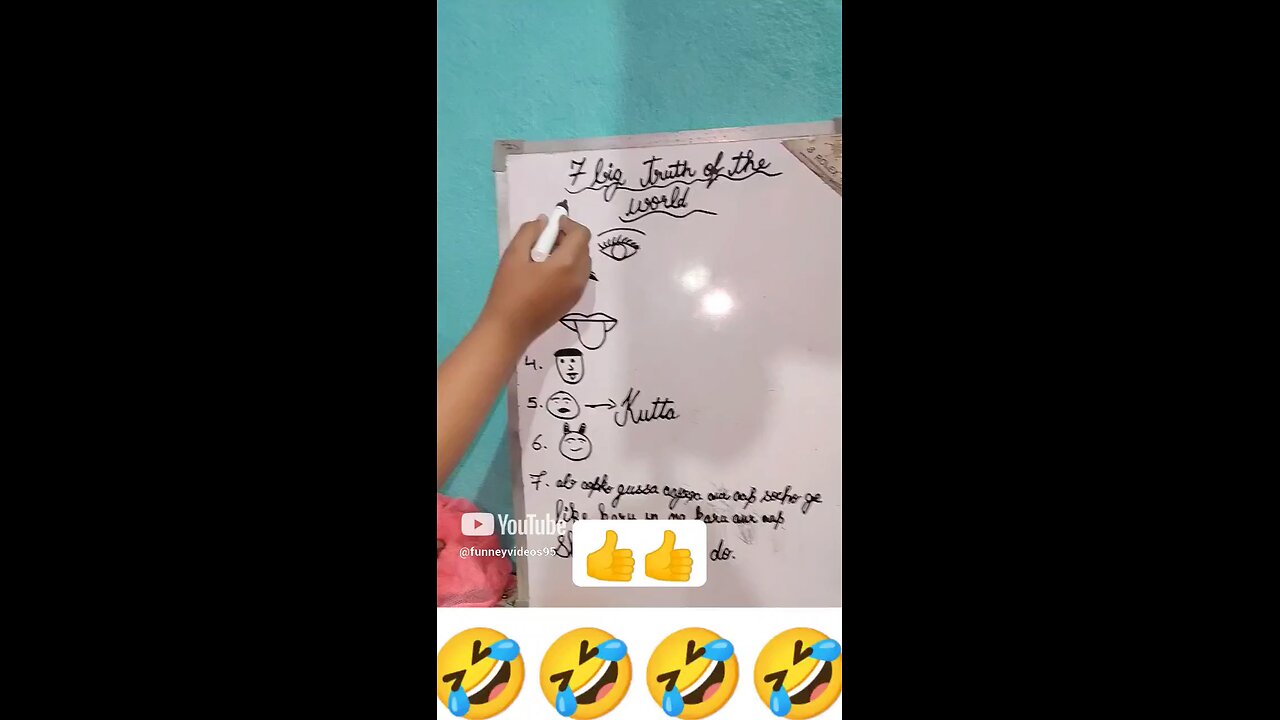 7 big truth of the
world
4.
5. → Kutta
6.
7. ab aapko gussa ayega aur aap socho ge
like karu ya na karu aur aap
do.
YouTube
@funneyvideos95
ROLEX